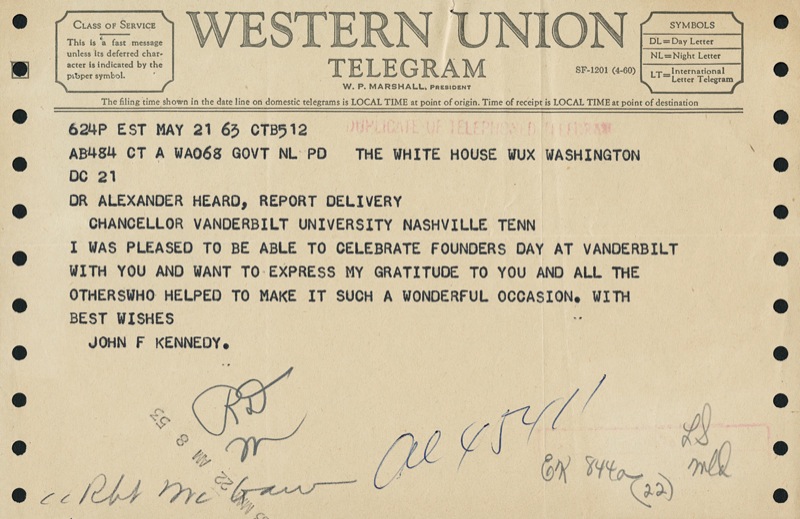 CLASS OF SERVICE
This is a fast message
unless its deferred char-
acter is indicated by the
proper symbol.
WESTERN UNION
TELEGRAM
W. P. MARSHALL, PRESIDENT
SF-1201 (4-60)
SYMBOLS
DL=Day Letter
NL=Night Letter
LT=International Letter Telegram
The filing time shown in the date line on domestic telegrams is LOCAL TIME at point of origin. Time of receipt is LOCAL TIME at point of destination
624P EST MAY 21 63 CTB512
DUPLICATE OF TELEPHONED TELEGRAM
AB484 CT A WA068 GOVT NL PD THE WHITE HOUSE WUX WASHINGTON
DC 21
DR ALEXANDER HEARD, REPORT DELIVERY
CHANCELLOR VANDERBILT UNIVERSITY NASHVILLE TENN
I WAS PLEASED TO BE ABLE TO CELEBRATE FOUNDERS DAY AT VANDERBILT
WITH YOU AND WANT TO EXPRESS MY GRATITUDE TO YOU AND ALL THE
OTHERSWHO HELPED TO MAKE IT SUCH A WONDERFUL OCCASION. WITH
BEST WISHES
JOHN F KENNEDY.
RD
m
22 AM 8 53
al 45411
LS
mld
EK 844a
(22)
cc Rbt McGaw